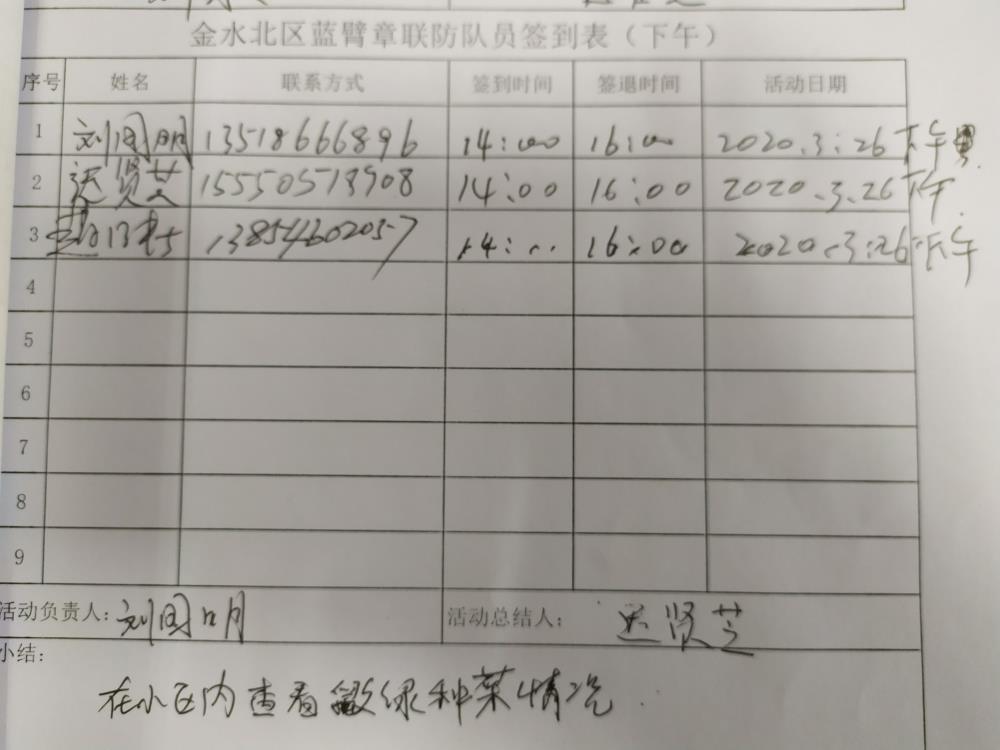 金水北区蓝臂章联防队员签到表（下午）
序号 姓名 联系方式 签到时间 签退时间 活动日期
1 刘国明 13518666896 14:00 16:00 2020.3:26 下午
2 迟贤芝 15550573908 14:00 16:00 2020.3.26 下午
3 13854602057 14:00 16:00 2020.3:26 下午
4
5
6
7
8
9
活动负责人：刘国明 活动总结人：迟贤芝
小结：
在小区内查看毁绿种菜情况